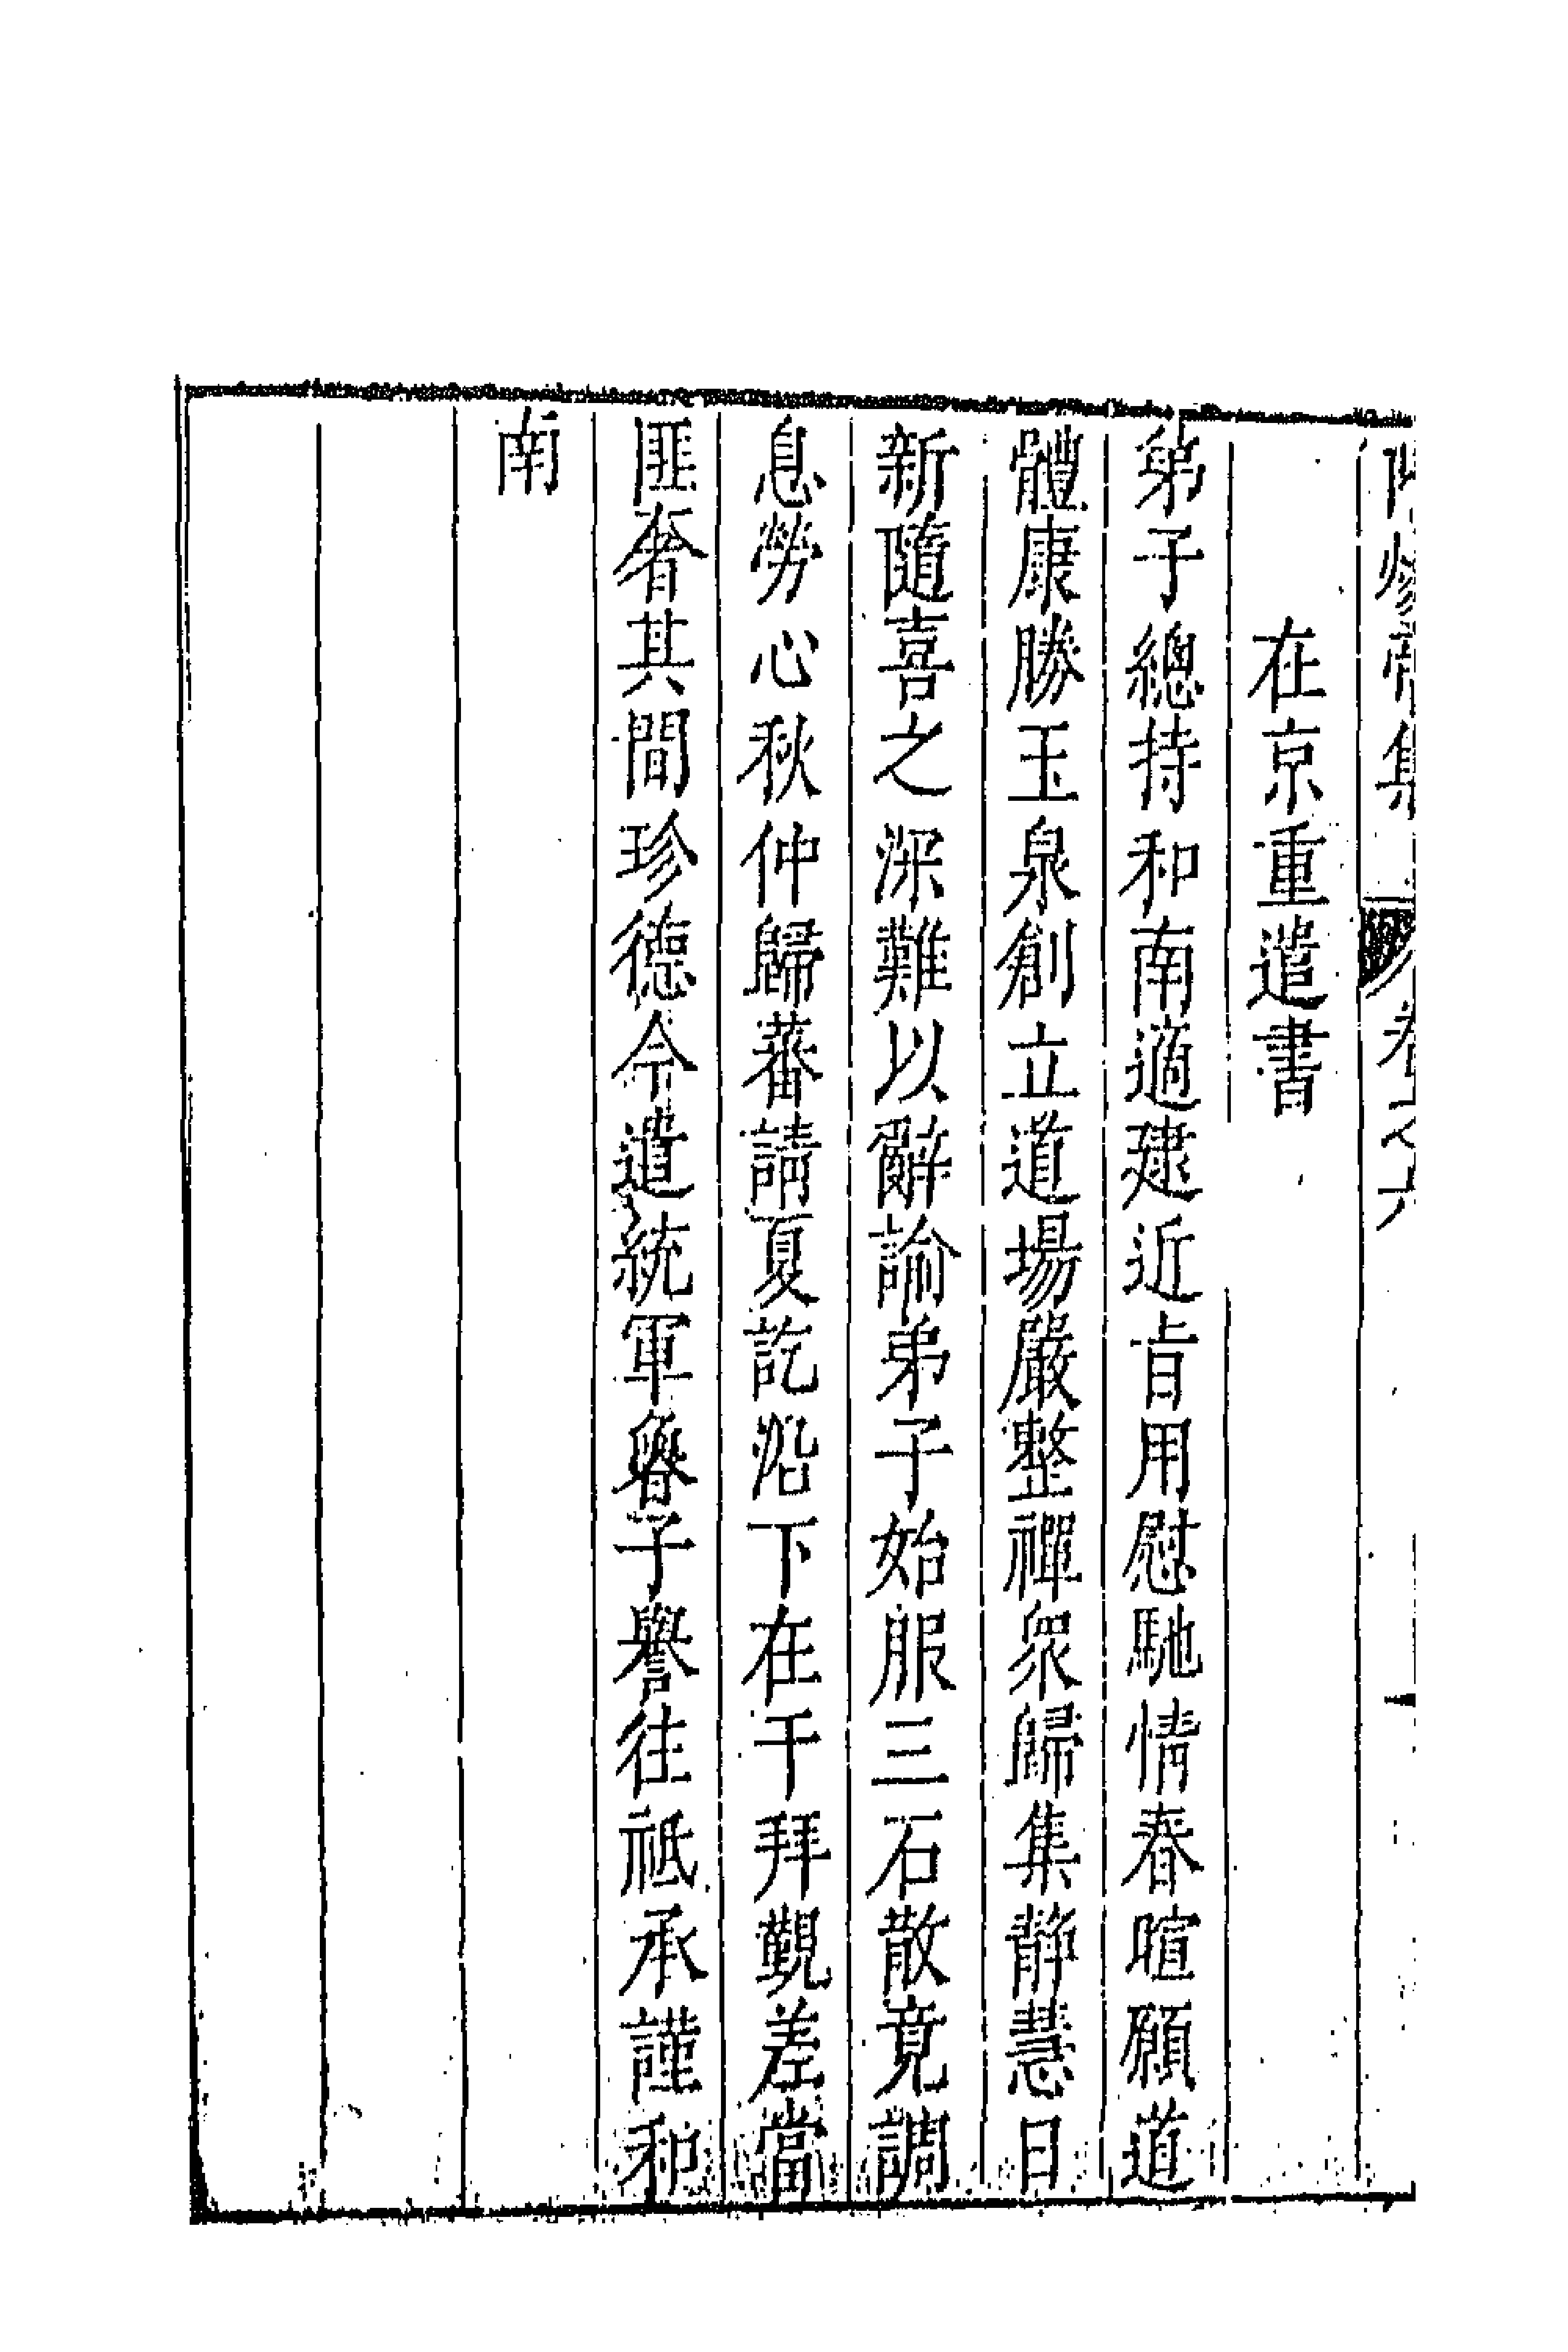 隋煬帝集 卷之六
在京重遣書
弟子總持和南適建近旨用慰馳情春暄願道
體康勝玉泉創立道場嚴整禪眾歸集静慧日
新隨喜之深難以辭諭弟子始服三石散竟調
息勞心秋仲歸蕃請夏訖沿下在于拜覲差當
匪奢其間珍德今遣統軍魯子譽往祗承謹和
南